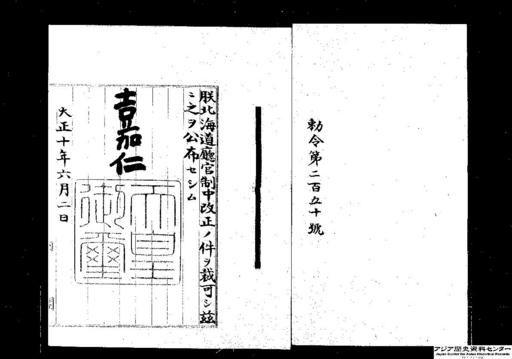 勅令第二百五十號
朕北海道廳官制中改正ノ件ヲ裁可シ茲
ニ之ヲ公布セシム
嘉仁
天皇御璽
大正十年六月二日
アジア歴史資料センター
Japan Center for Asian Historical Records